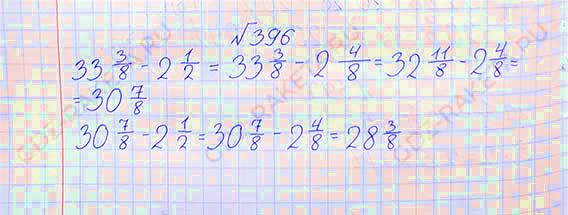 №396
33 3/8 - 2 1/2 = 33 3/8 - 2 4/8 = 32 11/8 - 2 4/8 =
= 30 7/8
30 7/8 - 2 1/2 = 30 7/8 - 2 4/8 = 28 3/8